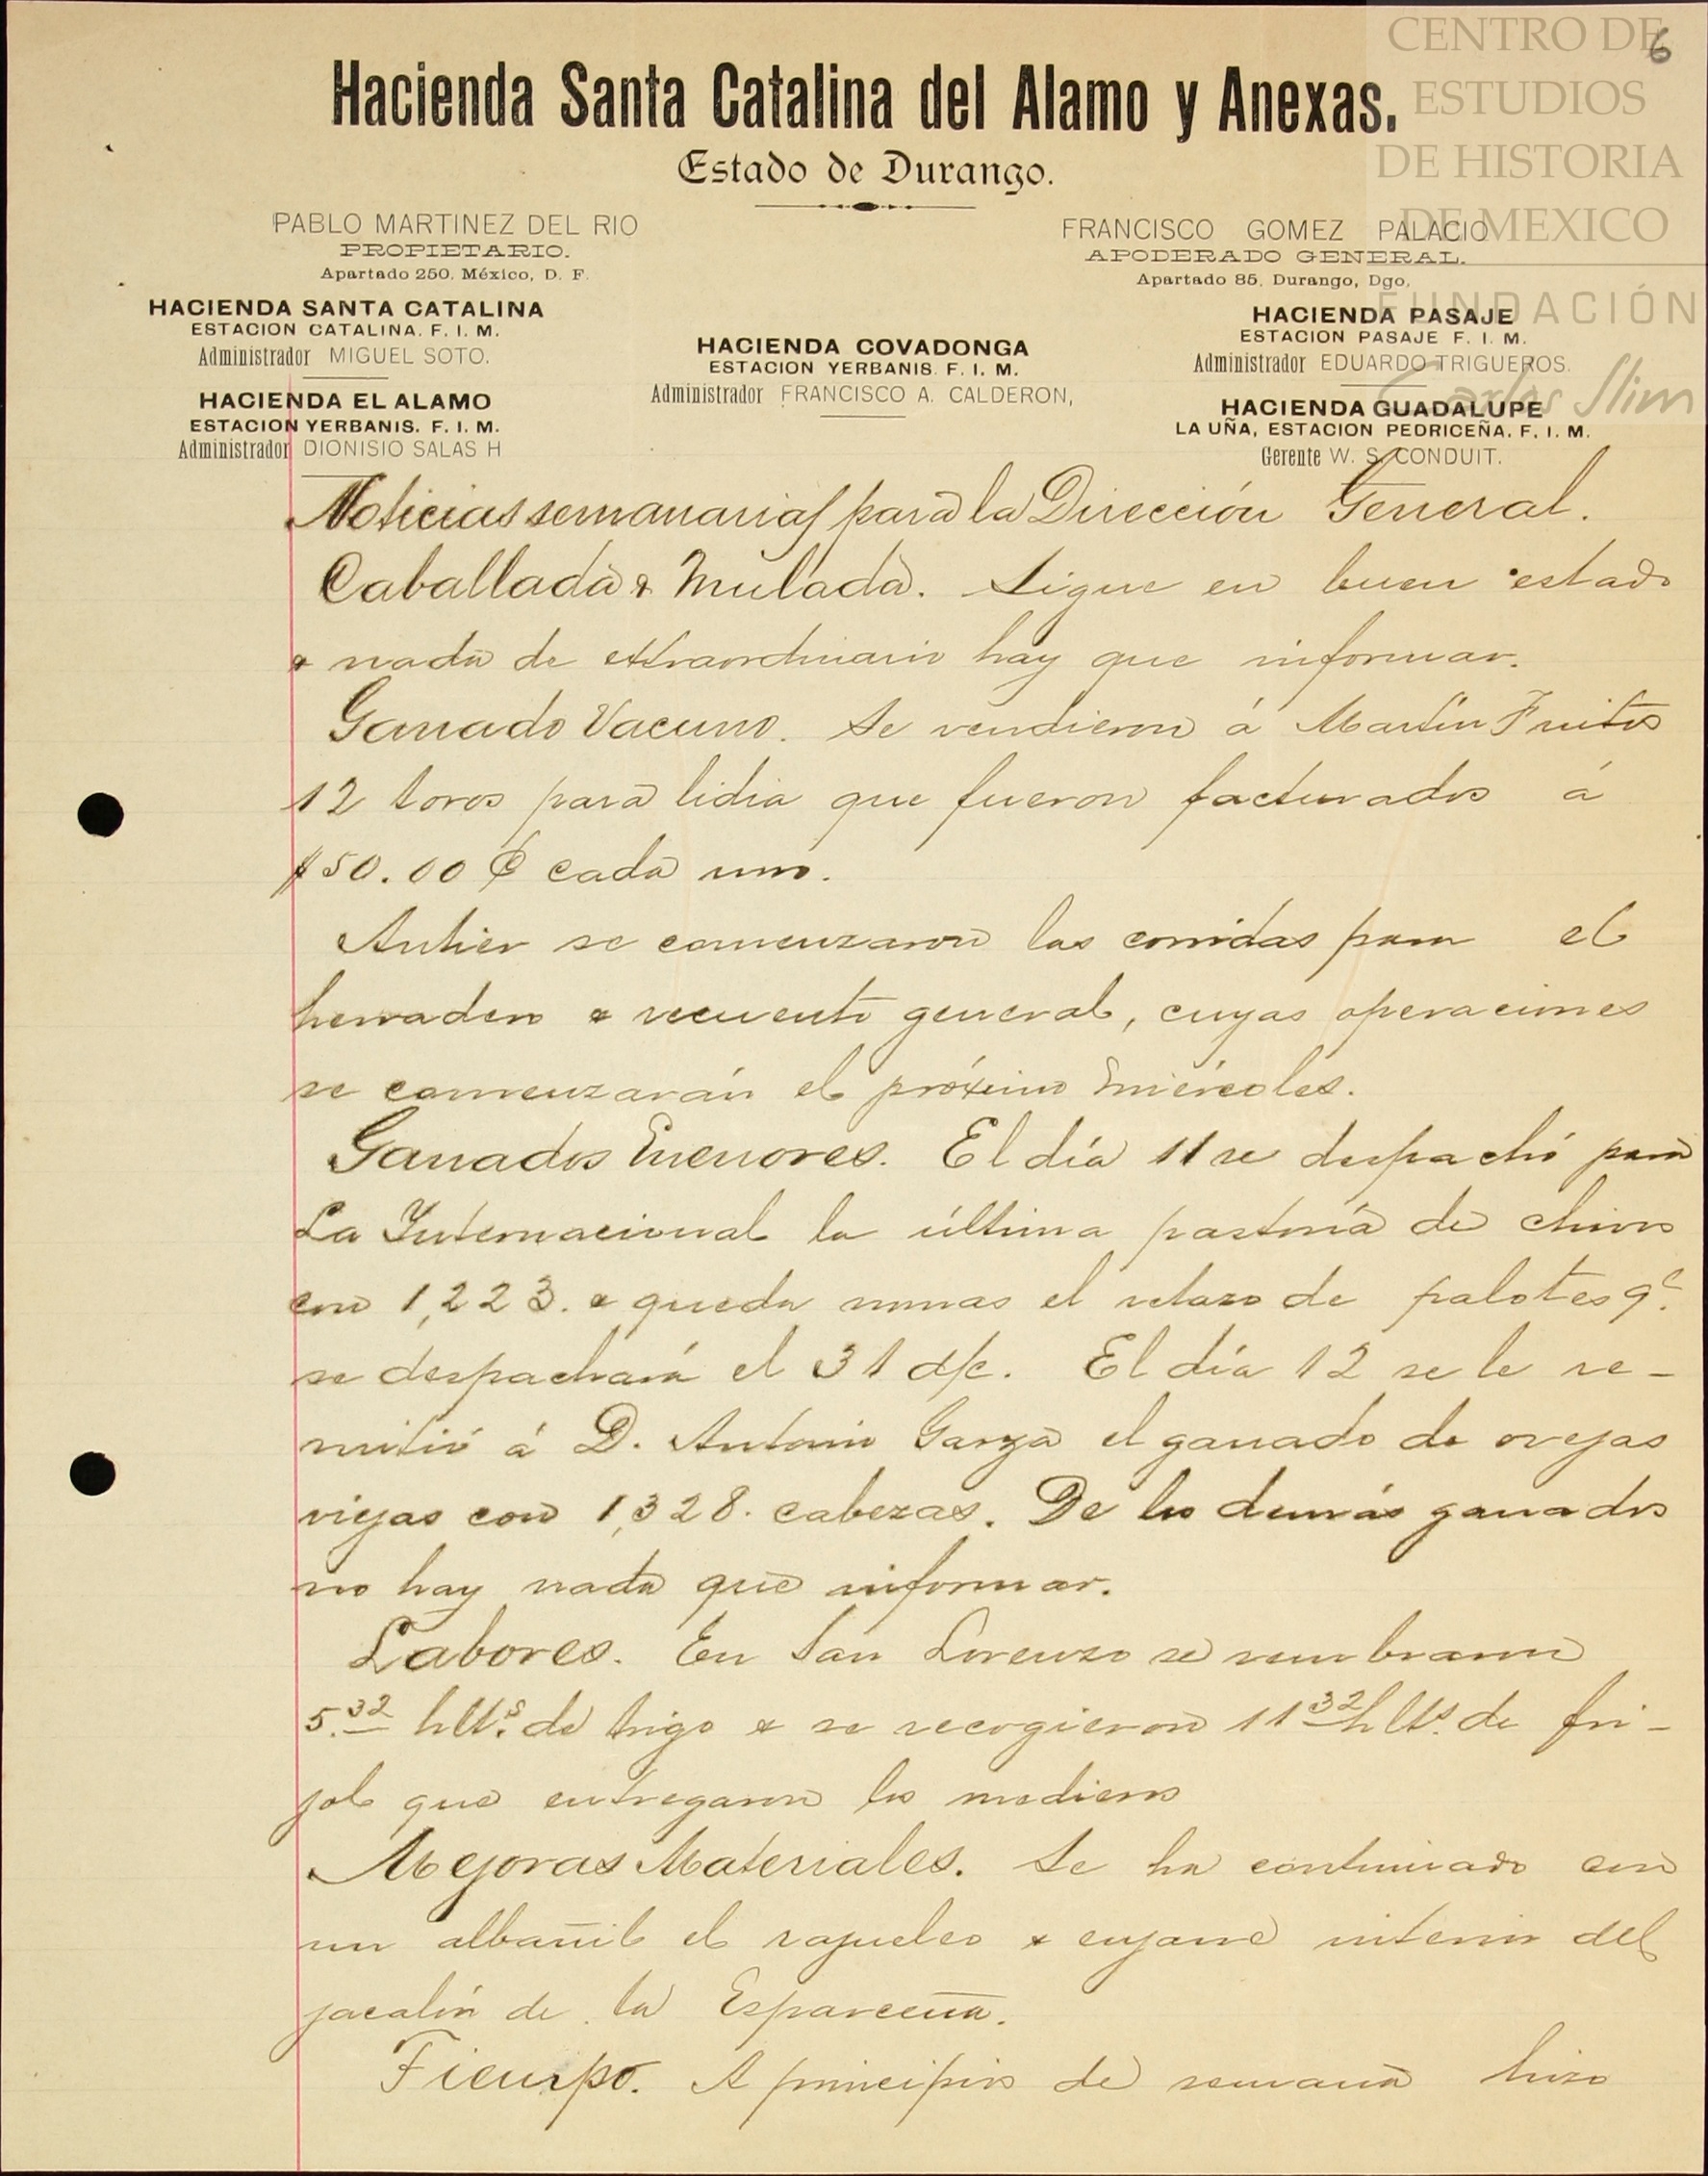 CENTRO DE
ESTUDIOS
DE HISTORIA
DE MEXICO
FUNDACIÓN
Carlos Slim
6
Hacienda Santa Catalina del Alamo y Anexas.
Estado de Durango.
PABLO MARTINEZ DEL RIO
PROPIETARIO.
Apartado 250, México, D. F.
FRANCISCO GOMEZ PALACIO
APODERADO GENERAL.
Apartado 85, Durango, Dgo,
HACIENDA SANTA CATALINA
ESTACION CATALINA. F. I. M.
Administrador MIGUEL SOTO.
HACIENDA EL ALAMO
ESTACION YERBANIS. F. I. M.
Administrador DIONISIO SALAS H
HACIENDA COVADONGA
ESTACION YERBANIS. F. I. M.
Administrador FRANCISCO A. CALDERON,
HACIENDA PASAJE
ESTACION PASAJE F. I. M.
Administrador EDUARDO TRIGUEROS.
HACIENDA GUADALUPE
LA UÑA, ESTACION PEDRICEÑA. F. I. M.
Gerente W. S. CONDUIT.
Noticias semanarias para la Dirección General.
Caballada & Mulada. Sigue en buen estado
& nada de extraordinario hay que informar.
Ganado Vacuno. Se vendieron á Martín Fruitos
12 toros para lidia que fueron facturados á
$50.00 ₵ cada uno.
Antier se comenzaron las corridas para el
herradero & recuento general, cuyas operaciones
se comenzarán el próximo miércoles.
Ganados menores. El día 11 se despachó para
La Internacional la última pastoría de chivos
con 1,223. & queda nomas el retazo de palotes qe.
se despachará el 31 d/c. El día 12 se le re-
mitió á D. Antonio Garza el ganado de ovejas
viejas con 1,328. cabezas. De los demás ganados
no hay nada que informar.
Labores. En San Lorenzo se sembraron
5.32 hlts. de trigo & se recogieron 11 32 hlts. de fri-
jol que entregaron los medieros
Mejoras Materiales. Se ha continuado con
un albañil el rajueleo & enjarre interior del
jacalón de la Esparceña.
Tiempo. A principios de semana hizo